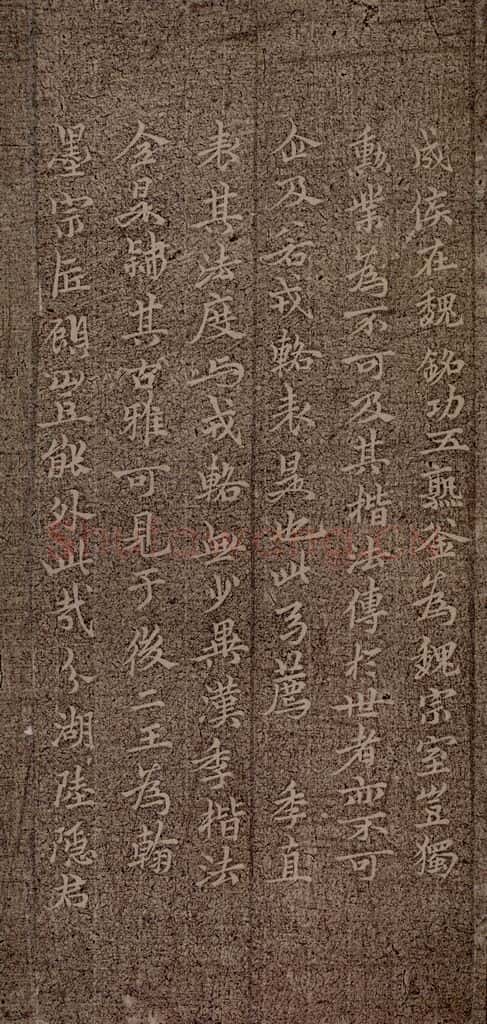 成侯在魏銘功五熟釜為魏宗室豈獨
勳業為不可及其楷法傳於世者亦不可
企及若戎輅表是也此乃薦 季直
表其法度與戎輅無少異漢季楷法
令泉歸其古雅可見于後二王為翰
墨宗匠顧豈能外此哉分湖陸隱君